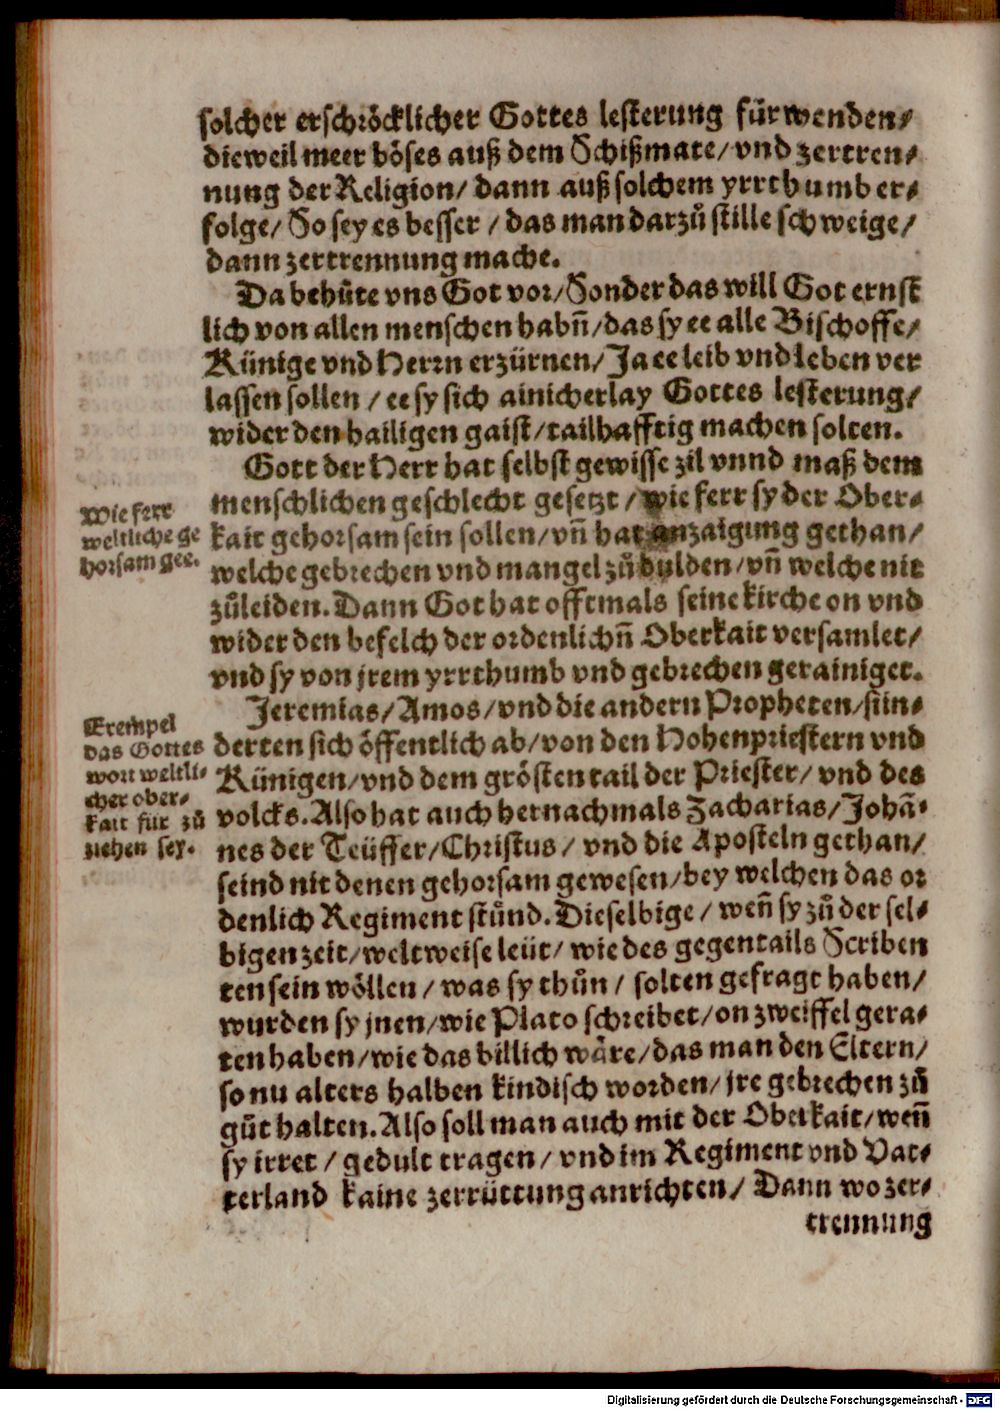 solcher erschröcklicher Gottes lesterung fürwenden/
dieweil meer böses auß dem Schißmate/ vnd zertren⸗
nung der Religion/ dann auß solchem yrrthumb er⸗
folge/ So sey es besser / das man darzů stille schweige/
dann zertrennung mache.
Da behůte vns Got vor/ Sonder das will Got ernst
lich von allen menschen habñ/ das sy ee alle Bischoffe/
Künige vnd Herrn erzürnen/ Ja ee leib vnd leben ver
lassen sollen / ee sy sich ainicherlay Gottes lesterung/
wider den hailigen gaist/ tailhafftig machen solten.
Gott der Herr hat selbst gewisse zil vnnd maß dem
menschlichen geschlecht gesetzt / wie ferr sy der Ober⸗
kait gehorsam sein sollen/ vñ hat anzaigung gethan/
welche gebrechen vnd mangel zů dulden/ vñ welche nit
zůleiden. Dann Got hat offtmals seine kirche on vnd
wider den befelch der ordenlichñ Oberkait versamlet/
vnd sy von jrem yrrthumb vnd gebrechen gerainiget.
Jeremias/ Amos/ vnd die andern Propheten/ sün⸗
derten sich öffentlich ab/ von den Hohenpriestern vnd
Künigen/ vnd dem grösten tail der Priester/ vnd des
volcks. Also hat auch hernachmals Zacharias/ Johã⸗
nes der Teüffer/ Christus/ vnd die Aposteln gethan/
seind nit denen gehorsam gewesen/ bey welchen das or
denlich Regiment stůnd. Dieselbige / weñ sy zů der sel⸗
bigen zeit/ weltweise leüt/ wie des gegentails Scriben
ten sein wöllen / was sy thůn / solten gefragt haben/
wurden sy jnen/ wie Plato schreibet/ on zweiffel gera⸗
ten haben/ wie das billich wäre/ das man den Eltern/
so nu alters halben kindisch worden/ jre gebrechen zů
gůt halten. Also soll man auch mit der Oberkait/ weñ
sy irret / gedult tragen/ vnd im Regiment vnd Vat⸗
terland kaine zerrüttung anrichten/ Dann wo zer⸗
trennung
Wie ferr
weltliche ge
horsam gee.
Exempel
das Gottes
wort weltli⸗
cher ober⸗
kait für zů
ziehen sey.
Digitalisierung gefördert durch die Deutsche Forschungsgemeinschaft - DFG